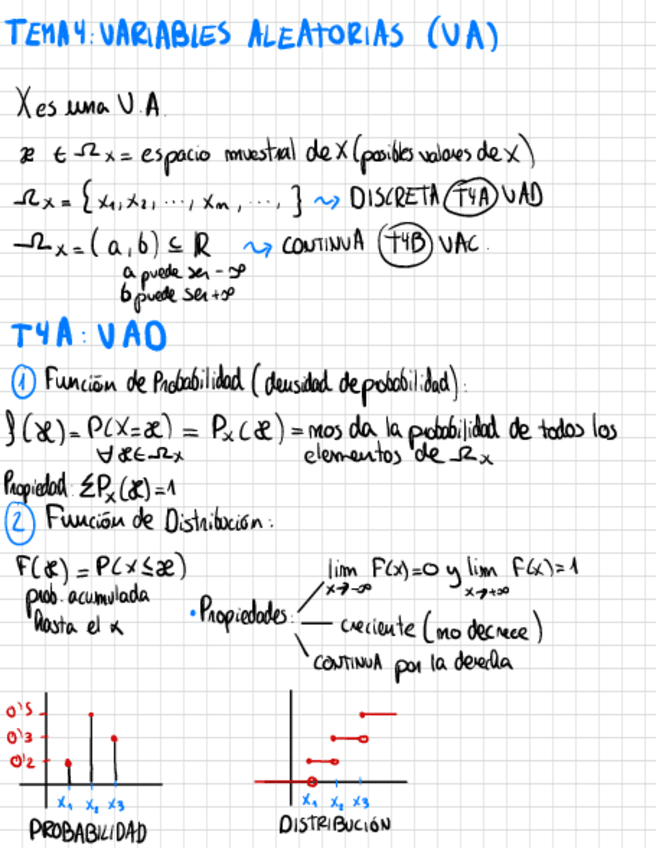 TEMA 4: VARIABLES ALEATORIAS (VA)
X es una V.A.
x ∈ Ω_X = espacio muestral de X (posibles valores de X)
Ω_X = {x₁, x₂, ..., xₙ, ..., } ⇝ DISCRETA (T4A) VAD
Ω_X = (a, b) ⊆ ℝ ⇝ CONTINUA (T4B) VAC.
a puede ser -∞
b puede ser +∞
T4A: VAD
① Función de Probabilidad (densidad de probabilidad):
f(x) = P(X=x) = P_X(x) = nos da la probabilidad de todos los
∀x∈Ω_X elementos de Ω_X
Propiedad: ΣP_X(x)=1
② Función de Distribución:
F(x) = P(X≤x)
prob. acumulada
hasta el x
• Propiedades:
lim F(x)=0 y lim F(x)=1
x→-∞ x→+∞
creciente (no decrece)
CONTINUA por la derecha
0'5
0'3
0'2
x₁ x₂ x₃
PROBABILIDAD
x₁ x₂ x₃
DISTRIBUCIÓN